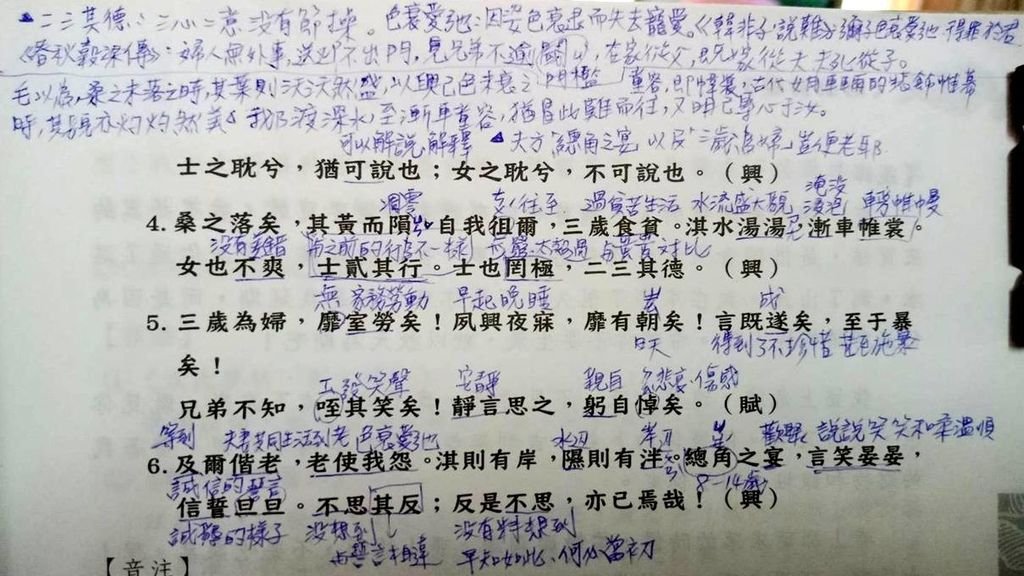 ▲二三其德:三心二意沒有節操。色衰愛弛:因姿色衰退而失去寵愛。《韓非子‧說難》彌子色衰愛弛得罪於君
《春秋穀梁傳》:婦人無外事,送迎不出門,見兄弟不逾閾。在家從父,既嫁從夫,夫死從子。
門檻
毛以為,桑之未落之時,其葉則沃沃然盛,以興己色未衰之 童容,即幃裳,古代女用車輛的裝飾帷幕
時,其貌亦灼灼然美。我乃渡深水,至漸車童容,猶冒此難而往,又明己專心于汝。
可以解說解釋 ▲夫方 總角之宴 以及 三歲為婦 豈便老耶
士之耽兮,猶可說也;女之耽兮,不可說也。(興)
凋零 往至 過貧苦生活 水流盛大貌 淹沒 浸泡 車旁帷幔
4. 桑之落矣,其黃而隕。自我徂爾,三歲食貧。淇水湯湯,漸車帷裳。
沒有差錯 與之前的行為不一樣
女也不爽,士貳其行。士也罔極,二三其德。(興)
無 家務勞動 早起晚睡 成
5. 三歲為婦,靡室勞矣!夙興夜寐,靡有朝矣!言既遂矣,至于暴
得到了不珍惜甚至施暴
矣!
笑聲 安靜 親自 傷感
兄弟不知,咥其笑矣!靜言思之,躬自悼矣。(賦)
夫妻共同生活到老 色衰愛弛 水邊 岸邊 歡聚 說說笑笑和柔溫順
6. 及爾偕老,老使我怨。淇則有岸,隰則有泮。總角之宴,言笑晏晏,
誠信的誓言 8-14歲
信誓旦旦。不思其反;反是不思,亦已焉哉!(興)
誠懇的樣子 沒想到 沒有料想到
與誓言相違 早知如此、何必當初
【音注】